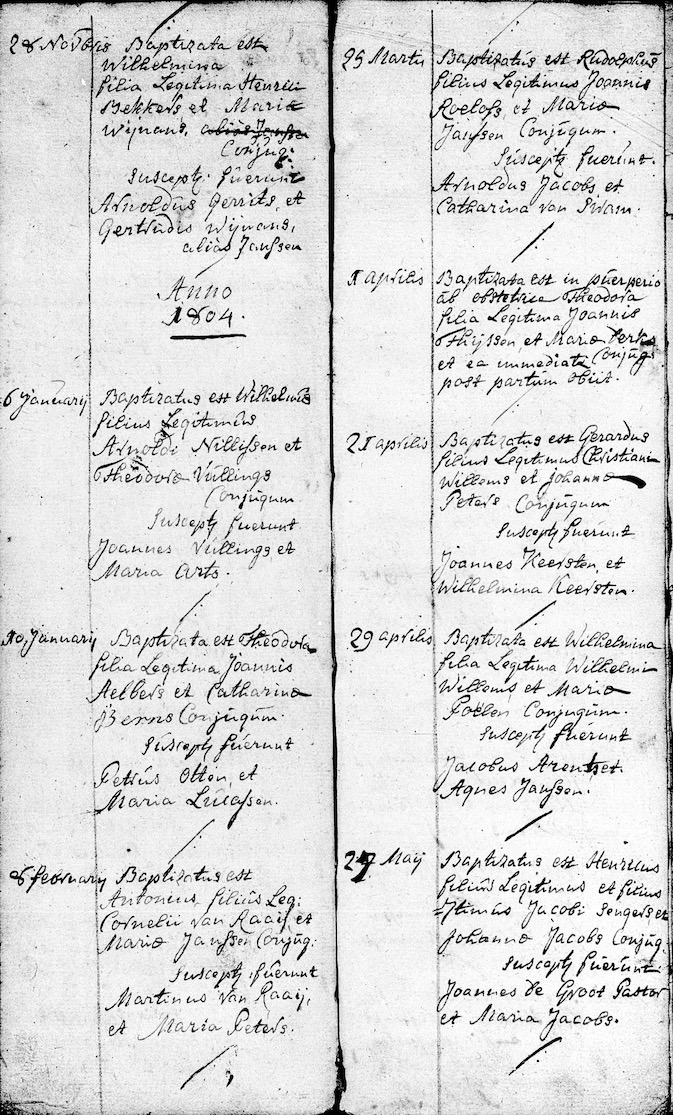 28 Novbris Baptizata est
Wilhelmina
filia Legitima Henrici
Bekkers et Mariæ
Wijnans, alias Jansse
Conjug:
Suscept: fuerunt
Arnoldus Gerrits, et
Gertrudis Wijnans,
alias Janssen
Anno
1804.
6 januarij Baptizatus est Wilhelmus
filius Legitimus
Arnoldi Nillissen et
Theodoræ Vullings
Conjugum
Suscepty fuerunt
Joannes Vullings, et
Maria Arts.
10, January Baptizata est Theodora
filia Legitima Joannis
Aelbers et Catharinæ
Berns Conjugum.
Suscepty fuerunt
Petrus Otten, et
Maria Lucassen.
8 february Baptizatus est
Antonius filius Leg:
Cornelii van Raaij et
Mariæ Janssen Conjug:
Suscepty fuerunt
Martinus van Raaij,
et Maria Peters.
25 Marty Baptizatus est Rudolphus
filius Legitimus Joannis
Roelofs, et Mariæ
Janssen Conjugum.
Suscepty fuerunt.
Arnoldus Jacobs et
Catharina van Swam.
1 aprilis Baptizata est in puerperio
ab obstetrice Theodora
filia Legitima Joannis
Thijssen, et Mariæ
et ea immediatè Conjug:
post partum obiit.
21 aprilis Baptizatus est Gerardus
filius Legitimus Christiani
Willems et johannæ
Peters Conjugum
Suscepty fuerunt
Joannes Keersten, et
Wilhelmina Keersten.
29 aprilis Baptizata est Wilhelmina
filia Legitima Wilhelmi
Willems, et Mariæ
Pollen Conjugum.
Suscepty fuerunt
Jacobus Arents et.
Agnes Janssen.
27 Maij Baptizatus est Henricus
filius Legitimus et filius
=Itimus Jacobi Sengers et
Johannæ Jacobs Conjug.
Suscepty fuerunt
Joannes de Groot Pastor
et Maria Jacobs.